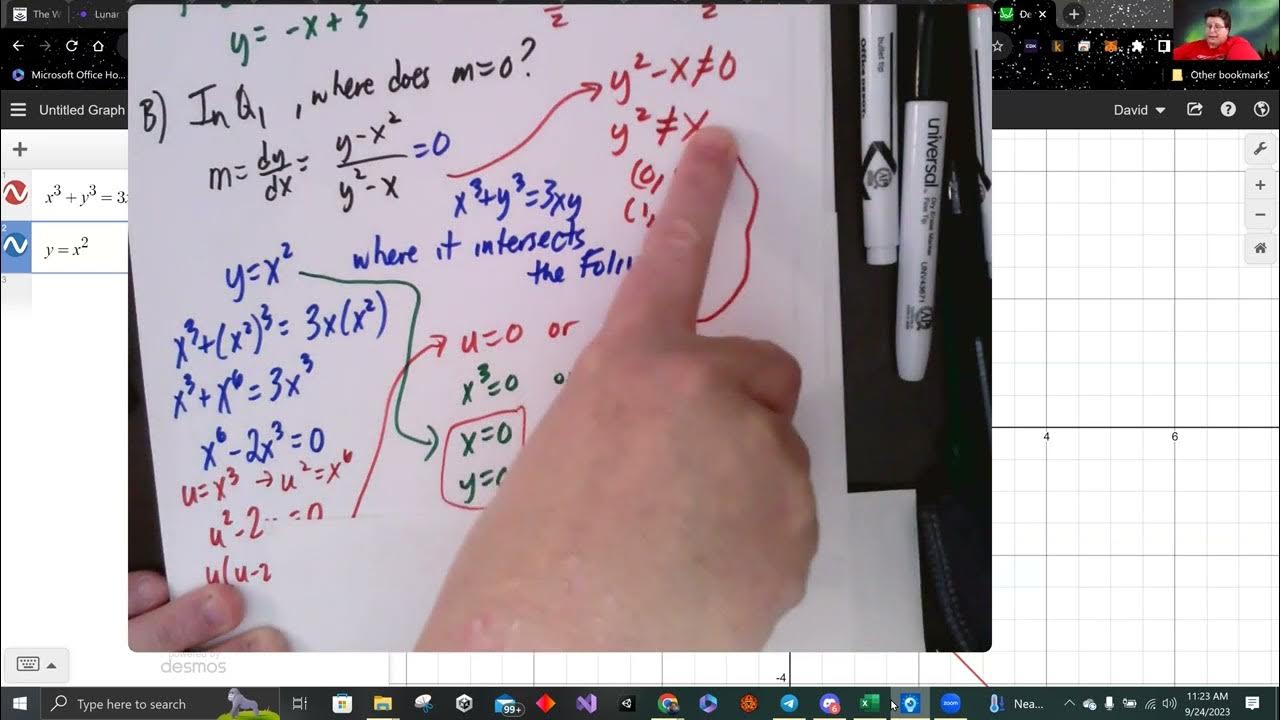 The W
Lunar
De
Microsoft Office Ho...
Other bookmarks
Untitled Graph
David
1
x³ + y³ = 3
2
y = x²
3
y = -x + 3
2
2
B) In Q₁, where does m=0?
m = dy/dx = (y-x²)/(y²-x) = 0
y²-x≠0
y²≠x
(0,
(1,
x³+y³=3xy
where it intersects
the Foli
y=x²
x³+(x²)³ = 3x(x²)
x³+x⁶=3x³
x⁶-2x³=0
u=x³ → u²=x⁶
u²-2 =0
u(u-2
u=0 or
x³=0
x=0
y=
bullet tip
universal
Dry Erase Marker
Fine Tip
UNV43671
AP
4
6
-4
powered by
desmos
Type here to search
99+
Nea...
11:23 AM
9/24/2023